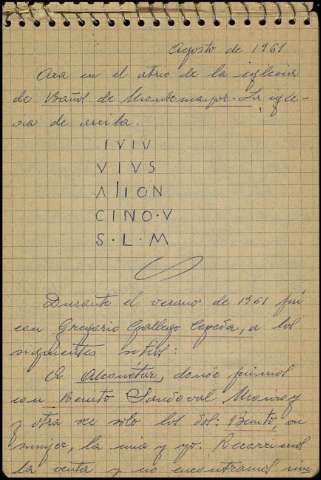 Agosto de 1961
Ara en el atrio de la iglesia
de Baños de Montemayor. La igle-
sia de arriba.
IVIV
VIVS
A\ION
CINO·V
S·L·M
Durante el verano de 1961 fui
con Gregorio Gallego Cepeda, a los
siguientes sitios:
A Alconétar, donde fuimos
con Benito Sandoval Moruno y
y otra vez solo los dos: Benito, su
mujer, la mia y yo. Recorrimos
la venta y no encontramos una